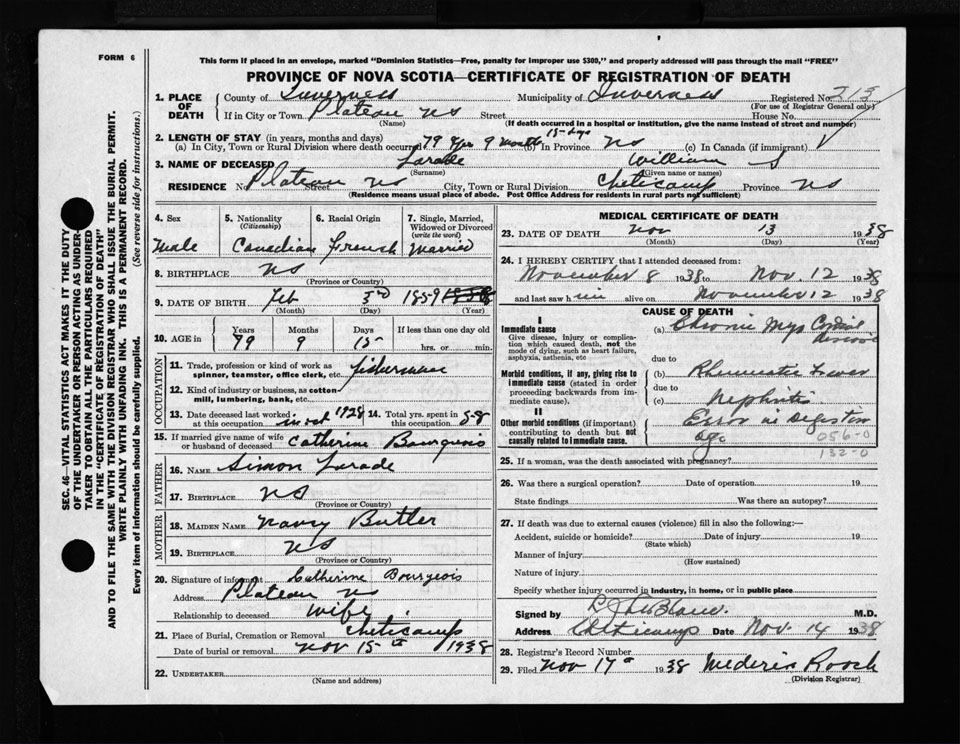 FORM 6
This form if placed in an envelope, marked "Dominion Statistics—Free, penalty for improper use $300," and properly addressed will pass through the mail "FREE"
PROVINCE OF NOVA SCOTIA—CERTIFICATE OF REGISTRATION OF DEATH
SEC. 46—VITAL STATISTICS ACT MAKES IT THE DUTY
OF THE UNDERTAKER OR PERSON ACTING AS UNDER-
TAKER TO OBTAIN ALL THE PARTICULARS REQUIRED
IN THE "CERTIFICATE OF REGISTRATION OF DEATH"
AND TO FILE THE SAME WITH THE DIVISION REGISTRAR WHO SHALL ISSUE THE BURIAL PERMIT.
WRITE PLAINLY WITH UNFADING INK. THIS IS A PERMANENT RECORD.
Every item of information should be carefully supplied. (See reverse side for instructions.)
1. PLACE OF DEATH
County of Inverness Municipality of Inverness Registered No. 213
(For use of Registrar General only)
If in City or Town Plateau NS Street House No.
(Name) (If death occurred in a hospital or institution, give the name instead of street and number)
2. LENGTH OF STAY (in years, months and days)
(a) In City, Town or Rural Division where death occurred 79 yrs 9 months 15 days (b) In Province NS (c) In Canada (if immigrant)
3. NAME OF DECEASED Larade William J
(Surname) (Given name or names)
RESIDENCE No. Plateau NS Street City, Town or Rural Division Cheticamp Province NS
(Residence means usual place of abode. Post Office Address for residents in rural parts not sufficient)
4. Sex Male
5. Nationality (Citizenship) Canadian
6. Racial Origin French
7. Single, Married, Widowed or Divorced (write the word) Married
8. BIRTHPLACE NS
(Province or Country)
9. DATE OF BIRTH Feb 3rd 1859
(Month) (Day) (Year)
10. AGE in Years Months Days If less than one day old
79 9 15 hrs. or min.
OCCUPATION
11. Trade, profession or kind of work as spinner, teamster, office clerk, etc. fisherman
12. Kind of industry or business, as cotton mill, lumbering, bank, etc.
13. Date deceased last worked at this occupation 1928 14. Total yrs. spent in this occupation 58
15. If married give name of wife or husband of deceased Catherine Bourgeois
FATHER
16. NAME Simon Larade
17. BIRTHPLACE NS
(Province or Country)
MOTHER
18. MAIDEN NAME Nancy Butler
19. BIRTHPLACE NS
(Province or Country)
20. Signature of informant Catherine Bourgeois
Address Plateau NS
Relationship to deceased wife
21. Place of Burial, Cremation or Removal Cheticamp
Date of burial or removal Nov 15th 1938
22. UNDERTAKER
(Name and address)
MEDICAL CERTIFICATE OF DEATH
23. DATE OF DEATH Nov 13 1938
(Month) (Day) (Year)
24. I HEREBY CERTIFY that I attended deceased from:
November 8 1938 to Nov. 12 1938
and last saw him alive on November 12 1938
CAUSE OF DEATH
I
Immediate cause
Give disease, injury or complication which caused death, not the mode of dying, such as heart failure, asphyxia, asthenia, etc
(a) Chronic Myo Cardial disease
due to
Morbid conditions, if any, giving rise to immediate cause (stated in order proceeding backwards from immediate cause).
(b) Rheumatic Fever
due to
(c) Nephritis
II
Other morbid conditions (if important) contributing to death but not causally related to immediate cause.
Error in digestion
Age 056-0
132-0
25. If a woman, was the death associated with pregnancy?
26. Was there a surgical operation? Date of operation 19
State findings Was there an autopsy?
27. If death was due to external causes (violence) fill in also the following:—
Accident, suicide or homicide? Date of injury 19
(State which)
Manner of injury
(How sustained)
Nature of injury
Specify whether injury occurred in industry, in home, or in public place
Signed by LeBlanc M.D.
Address Cheticamp Date Nov. 14 1938
28. Registrar's Record Number
29. Filed Nov 17th 1938
(Division Registrar)